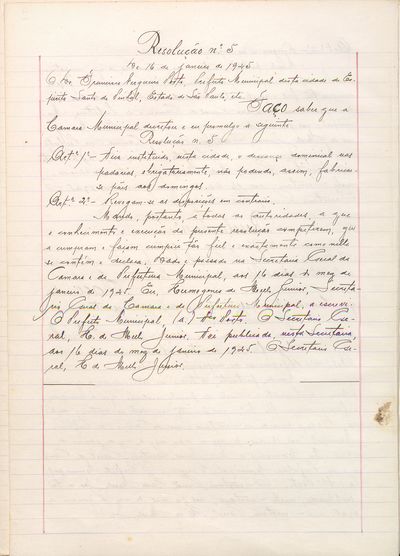 Resolução nº 5
De 16 de janeiro de 1925
O Dr. Francisco Vergueiro Porto, Prefeito Municipal desta cidade de Es-
pirito Santo do Pinhal, Estado de São Paulo, etc. Faço saber que a
Camara Municipal decretou e eu promulgo o seguinte:
Resolução n. 5
Artº 1º - Fica instituido, nesta cidade, o descanço dominical nas
padarias, obrigatoriamente, não podendo, assim, fabricar-
se pães aos domingos.
Artº 2º - Revogam-se as disposições em contrario.
Mando, portanto, a todas as autoridades, a que
o conhecimento e execução da presente resolução competirem, que
a cumpram e façam cumprir tão fiel e exactamente como nella
se contém e declara. Dada e passada na Secretaria Geral da
Camara e da Prefeitura Municipal, aos 16 dias do mez de
janeiro de 1925. Eu, Hermogenes de Mello Junior, Secreta-
rio Geral da Camara e da Prefeitura Municipal, a escrevi.
O Prefeito Municipal, (a.) Porto. O Secretario Ge-
ral, H. de Mello Junior. Foi publicada, nesta Secretaria,
aos 16 dias do mez de janeiro de 1925. O Secretario Ge-
ral, H. de Mello Junior.